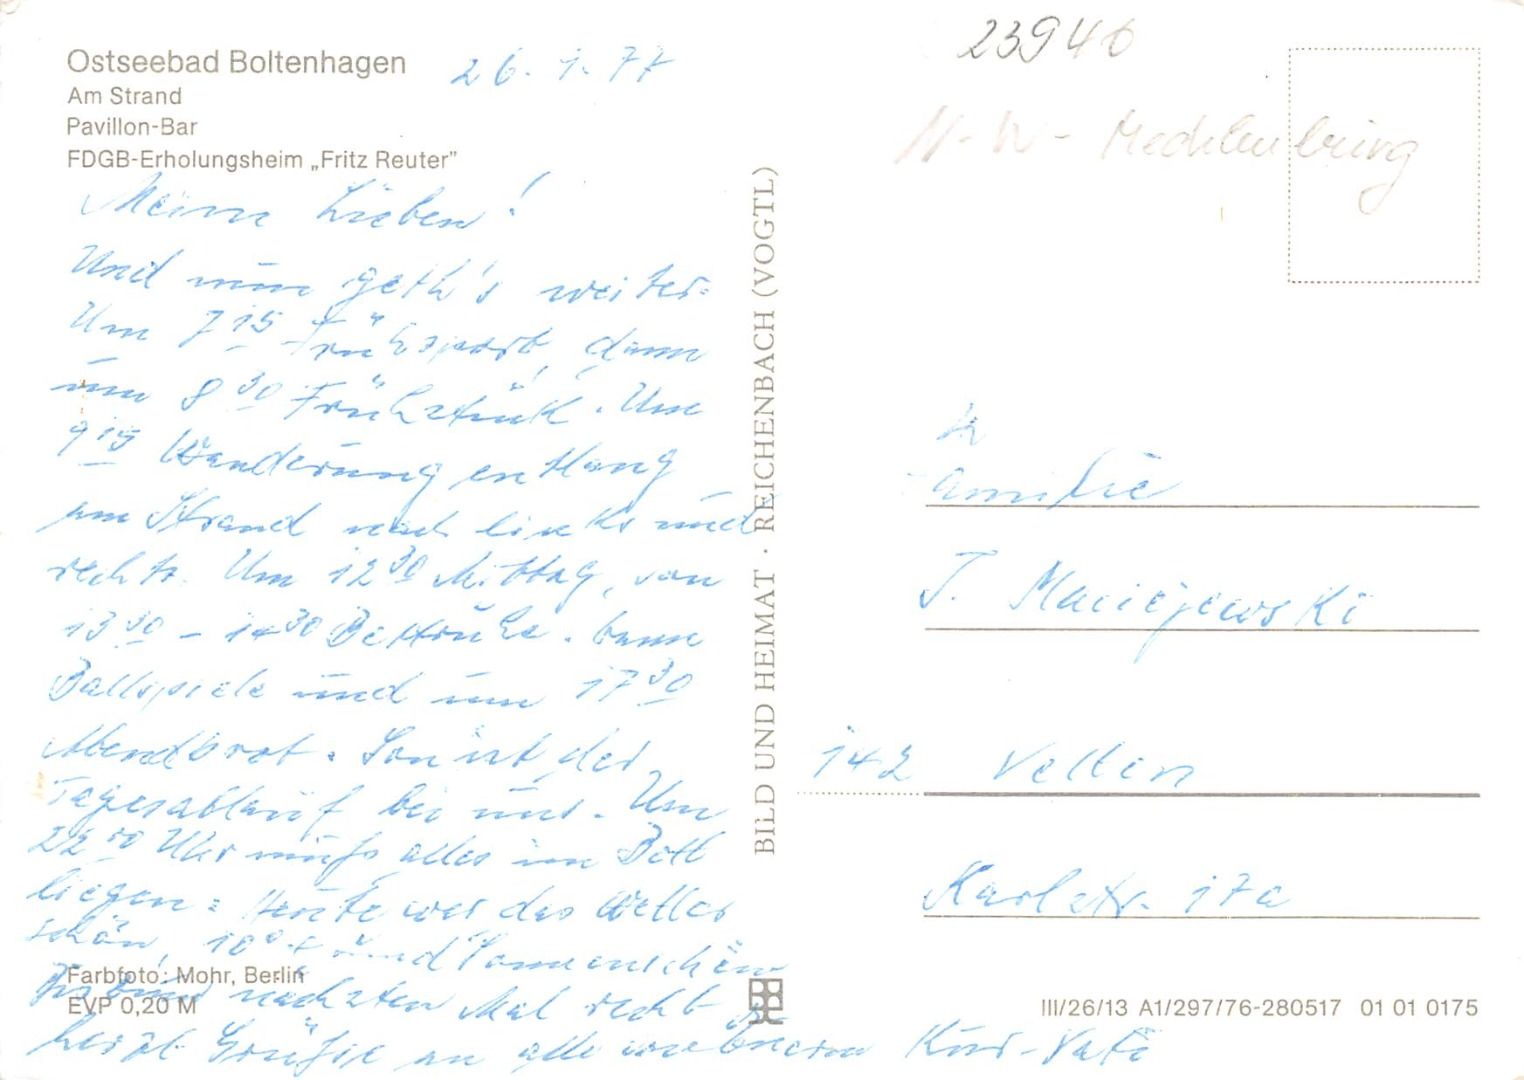 Ostseebad Boltenhagen
Am Strand
Pavillon-Bar
FDGB-Erholungsheim „Fritz Reuter"
26.1.77
Meine Lieben!
Und nun geth's weiter:
Um 7 15 Frühsport, dann
um 8 30 Frühstück. Um
9 15 Wanderung entlang
am Strand nach links und
rechts. Um 12 30 Mittag, von
13 30 - 14 30 Bettruhe. Dann
Ballspiele und um 17 30
Abendbrot. So ist der
Tagesablauf bei uns. Um
22 00 Uhr muß alles im Bett
liegen. Heute war das Wetter
schön, 10° + und Sonnenschein
Bis zum nächsten Mal recht
herzl. Grüße an alle von Kur-Vati
Farbfoto: Mohr, Berlin
EVP 0,20 M
BILD UND HEIMAT · REICHENBACH (VOGTL)
23946
N-W- Mecklenburg
Familie
J. Maciejewski
142 Velten
Karlstr. 17a
III/26/13 A1/297/76-280517 01 01 0175